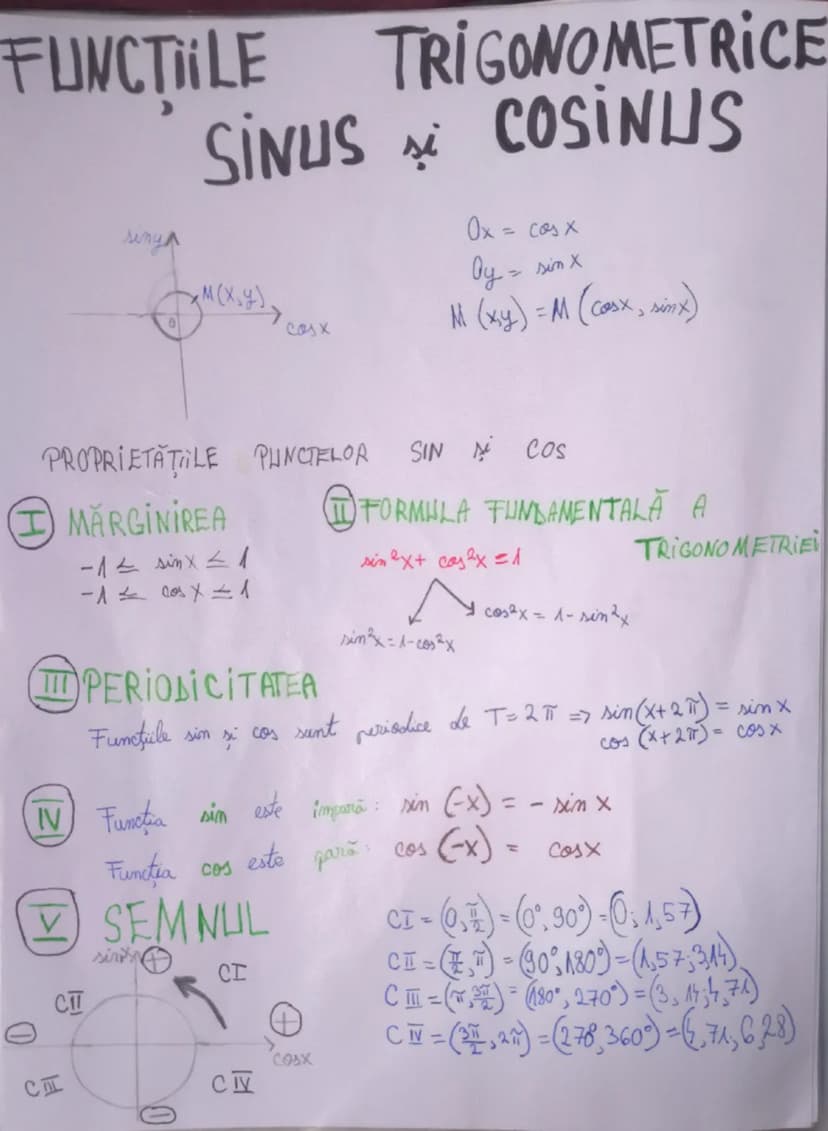 FUNCȚIILE TRIGONOMETRICE
SINUS și COSINUS
sin y
M(x,y)
0
cos x
Ox = cos x
Oy = sin x
M (x,y) = M (cosx, sinx)
PROPRIETĂȚIILE PUNCTELOR SIN și COS
I MĂRGINIREA
-1 ≤ sin x ≤ 1
-1 ≤ cos x ≤ 1
II FORMULA FUNDAMENTALĂ A
TRIGONOMETRIEI
sin²x + cos²x = 1
cos²x = 1 - sin²x
sin²x = 1 - cos²x
III PERIODICITATEA
Funcțiile sin și cos sunt periodice de T = 2π => sin(x+2π) = sin x
cos (x+2π) = cos x
IV Funcția sin este impară: sin (-x) = - sin x
Funcția cos este pară: cos (-x) = cos x
V SEMNUL
CI = (0, π/2) = (0°, 90°) = (0; 1,57)
CII = (π/2, π) = (90°, 180°) = (1,57; 3,14)
CIII = (π, 3π/2) = (180°, 270°) = (3,14; 4,71)
CIV = (3π/2, 2π) = (270°, 360°) = (4,71, 6,28)
sinx +
CI
CII
+
-
cosx
CIII
CIV
-